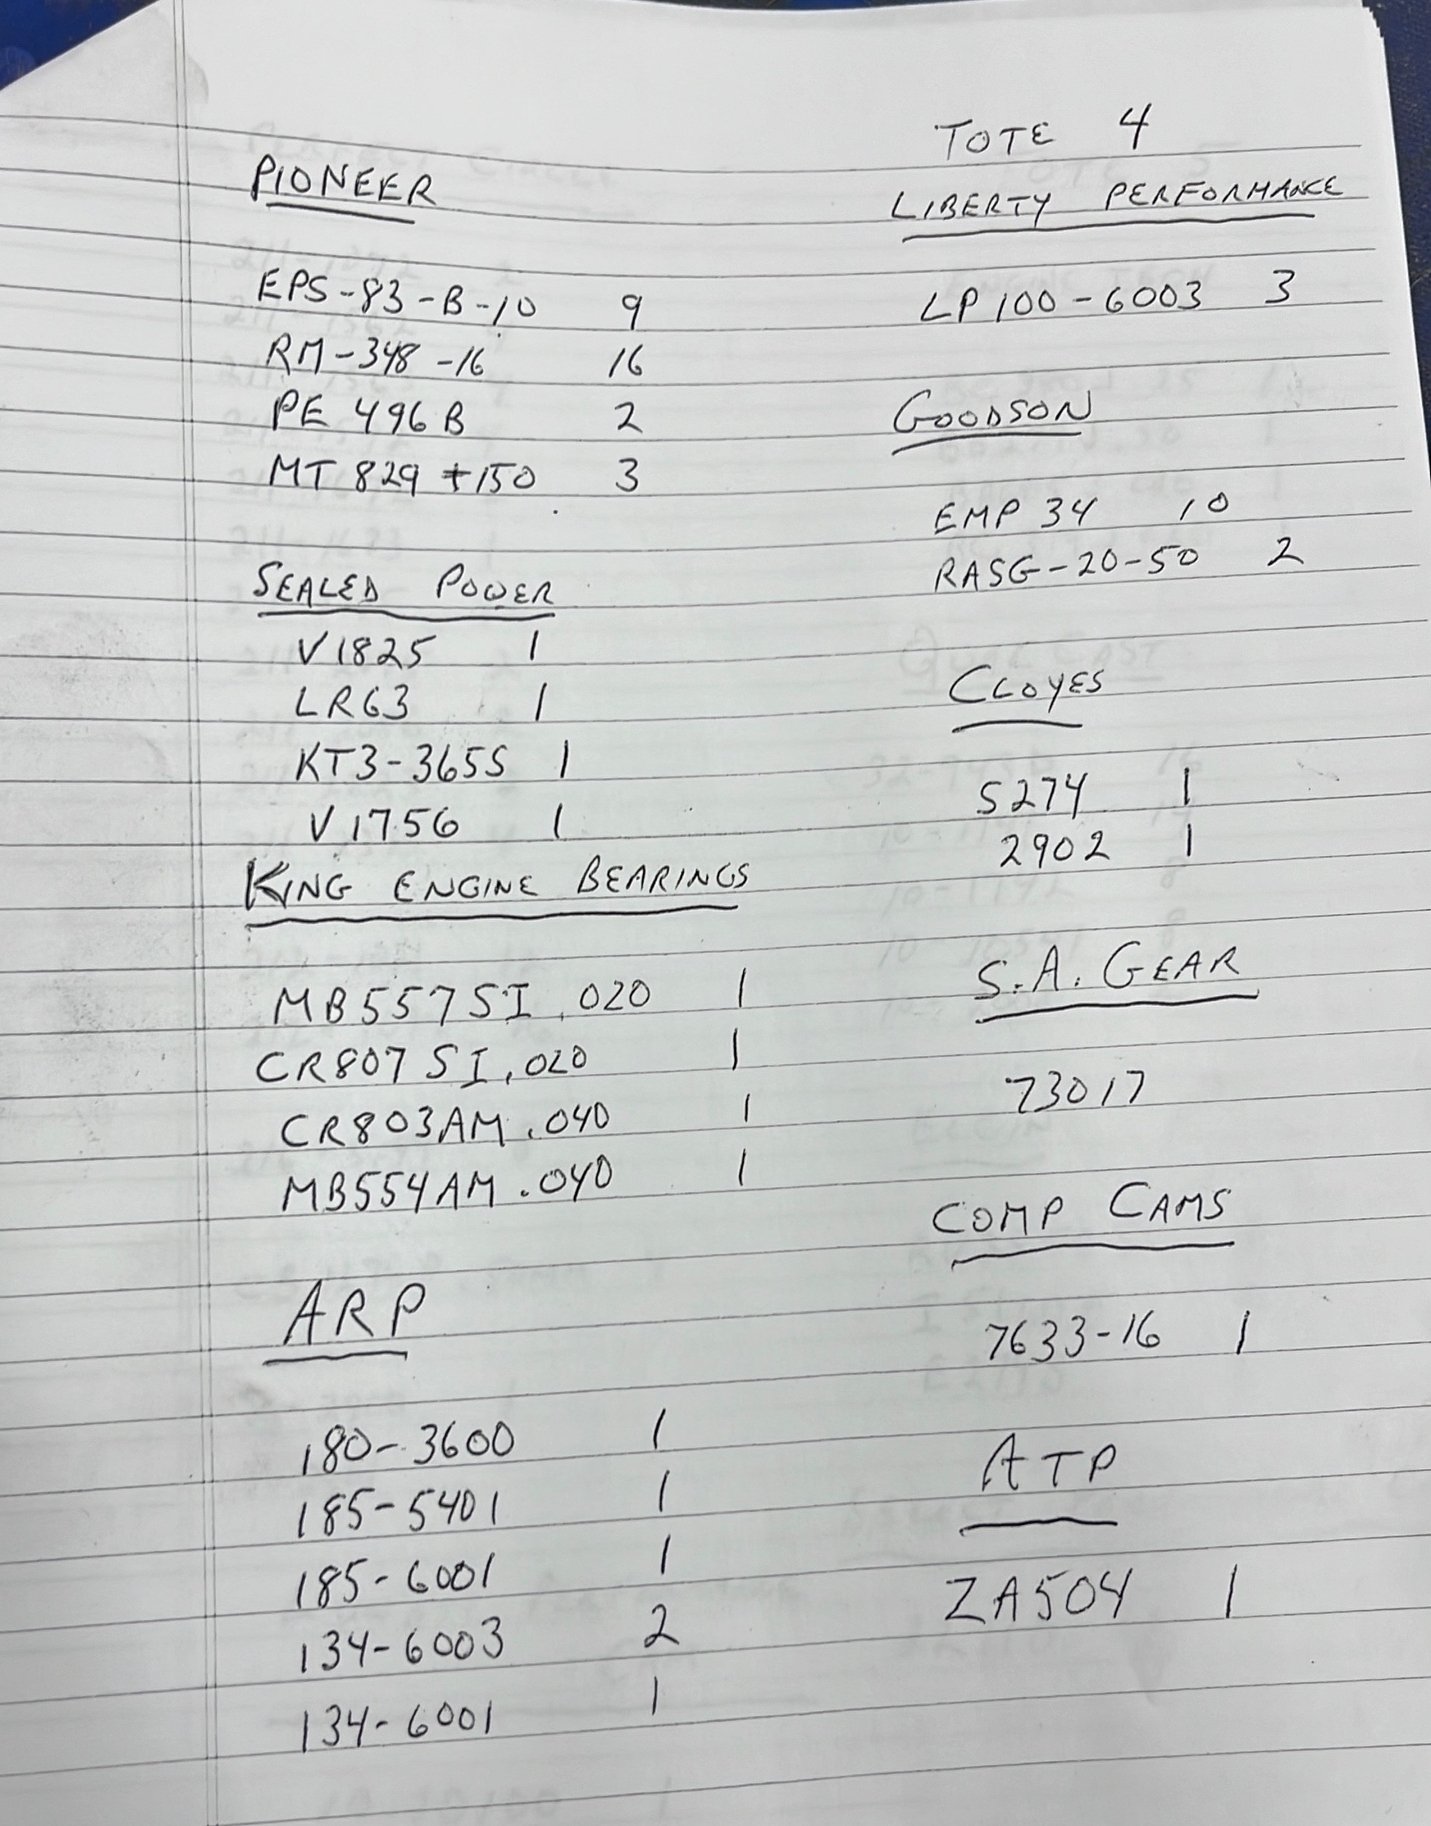 TOTE 4
PIONEER
EPS-83-B-10 9
RM-348-16 16
PE 496B 2
MT 829 +150 3
SEALED POWER
V1825 1
LR63 1
KT3-365S 1
V1756 1
KING ENGINE BEARINGS
MB557SI .020 1
CR807SI .020 1
CR803AM .040 1
MB554AM .040 1
ARP
180-3600 1
185-5401 1
185-6001 1
134-6003 2
134-6001 1
LIBERTY PERFORMANCE
LP100-6003 3
GOODSON
EMP 34 10
RASG-20-50 2
CLOYES
S274 1
2902 1
S.A. GEAR
73017
COMP CAMS
7633-16 1
ATP
ZA504 1